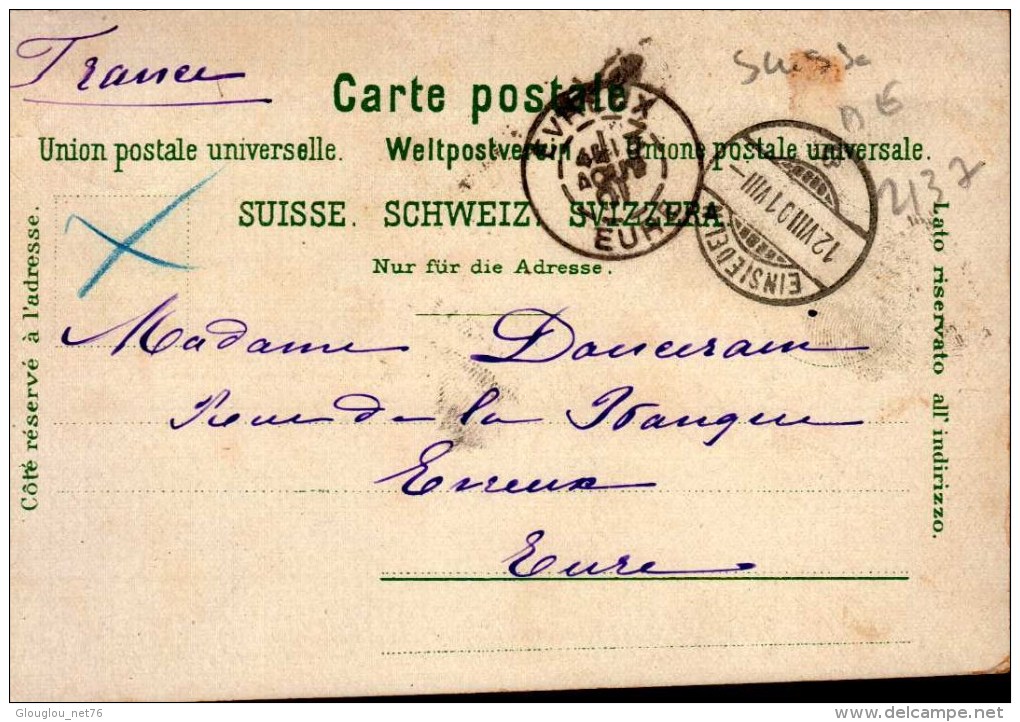 France
Suisse
Carte postale
Union postale universelle. Weltpostverein Unione postale universale.
2137
SUISSE. SCHWEIZ. SVIZZERA
Nur für die Adresse.
EVREUX
EURE
EINSIEDELN
12.VIII.01.VIII–
Côté réservé à l'adresse.
Lato riservato all'indirizzo.
Madame Doucerain
Rue de la Banque
Evreux
Eure
Glouglou_net76
delcampe.net